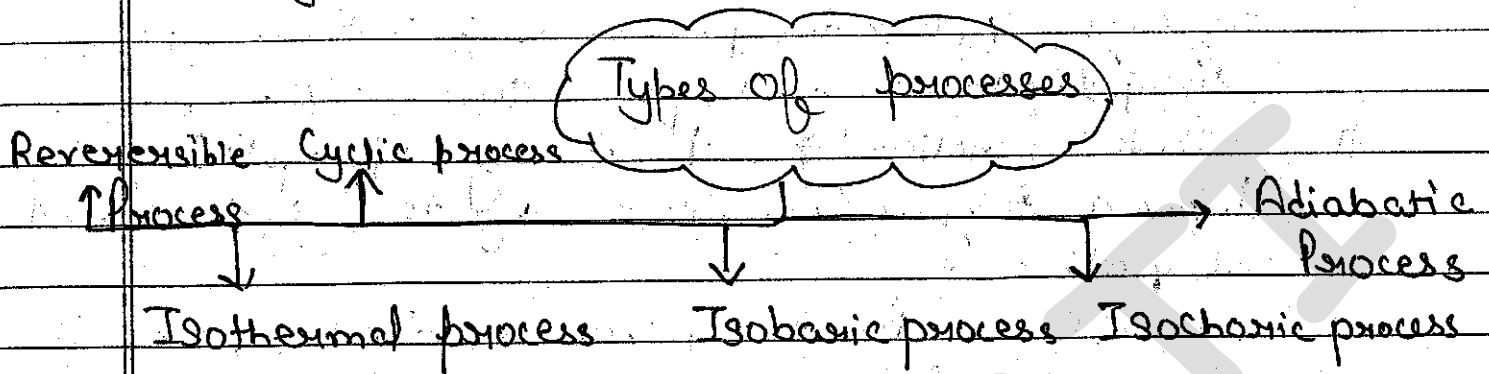 Types of processes
Revererersible Cyclic process
Process
Adiabatic
Process
Isothermal process Isobaric process Isochoric process